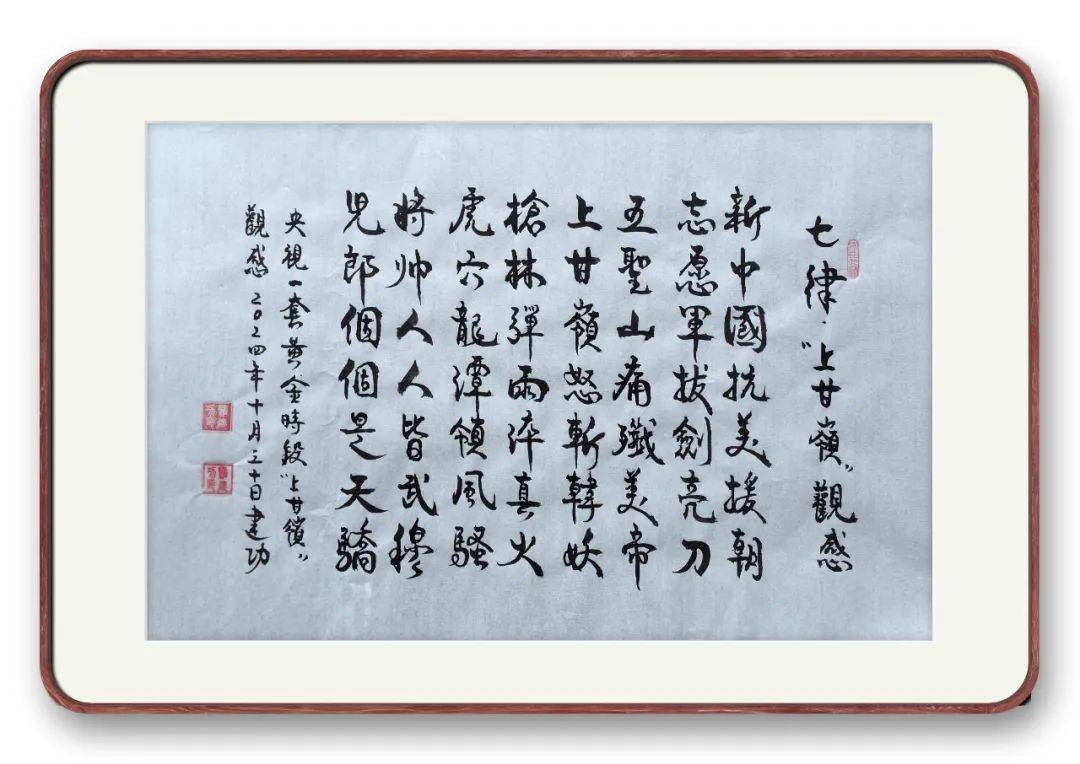 七律·“上甘嶺”觀感
新中國抗美援朝
志愿軍拔劍亮刀
五聖山痛殲美帝
上甘嶺怒斬韓妖
槍林彈雨淬真火
虎穴龍潭領風騷
將帅人人皆武穆
児郎個個是天驕
央視一套黄金時段“上甘嶺”
觀感2024年十月三十日建功